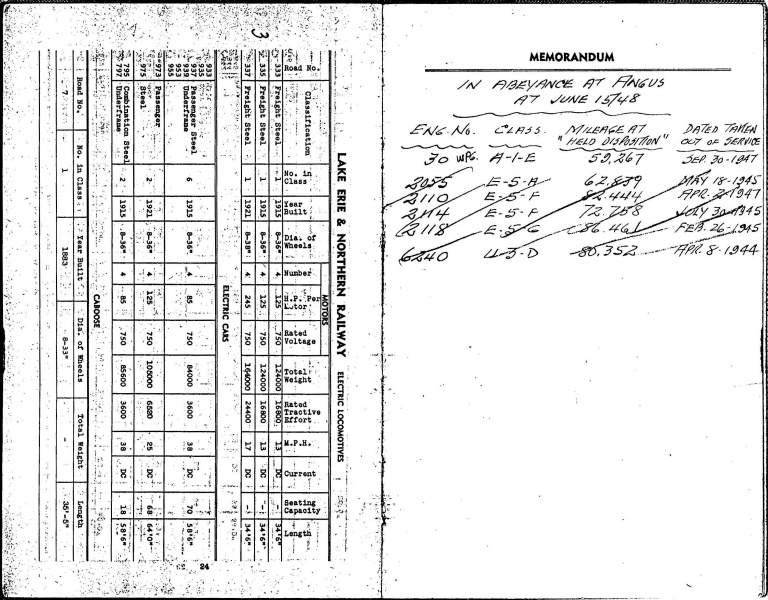 3
LAKE ERIE & NORTHERN RAILWAY
ELECTRIC LOCOMOTIVES
MOTORS
Road No. Classification No. in Class Year Built Dia. of Wheels Number H.P. Per Motor Rated Voltage Total Weight Rated Tractive Effort M.P.H. Current Seating Capacity Length
333 Freight Steel 1 1915 8-36" 4 125 750 124000 16800 13 DC - 34'6"
335 Freight Steel 1 1915 8-36" 4 125 750 124000 16800 13 DC - 34'6"
337 Freight Steel 1 1921 8-38" 4 245 750 164000 24400 17 DC - 34'6"
ELECTRIC CARS
933
935
937 Passenger Steel
939 Underframe 6 1915 8-36" 4 85 750 84000 3600 38 DC 70 58'6"
953
955
973 Passenger
975 Steel 2 1921 8-36" 4 125 750 105000 6580 25 DC 68 64'0"
795 Combination Steel
797 Underframe 2 1915 8-36" 4 85 750 85600 3600 38 DC 18 58'6"
CABOOSE
Road No. No. in Class Year Built Dia. of Wheels Total Weight Length
7 1 1883 8-33" - 35'-5"
24
MEMORANDUM
IN ABEYANCE AT ANGUS
AT JUNE 15/48
ENG. NO. CLASS. MILEAGE AT DATED TAKEN
"HELD DISPOSITION" OUT OF SERVICE
30 WPG. A-1-E 59,267 SEP. 30-1947
2055 E-5-A 62,839 MAY 18-1945
2110 E-5-F 82,444 APR. 2-1947
2114 E-5-F 72,758 JULY 30-1945
2118 E-5-G 86,461 FEB. 26-1945
6240 U-3-D 80,352 APR. 8-1944